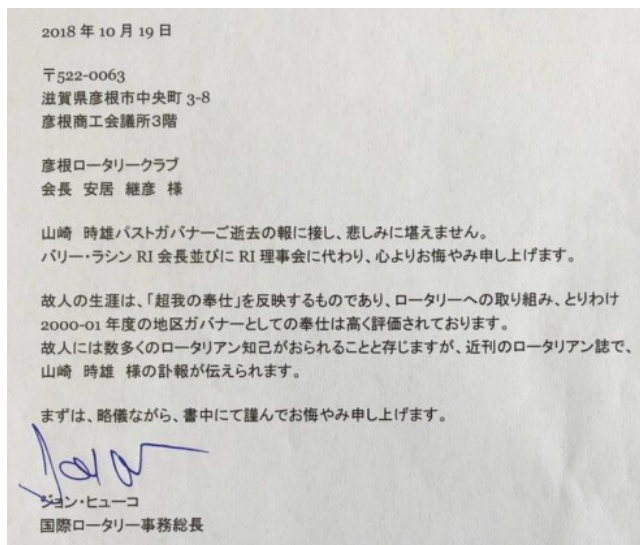 2018 年 10 月 19 日
〒522-0063
滋賀県彦根市中央町 3-8
彦根商工会議所3階
彦根ロータリークラブ
会長 安居 継彦 様
山崎 時雄パストガバナーご逝去の報に接し、悲しみに堪えません。
バリー・ラシン RI 会長並びに RI 理事会に代わり、心よりお悔やみ申し上げます。
故人の生涯は、「超我の奉仕」を反映するものであり、ロータリーへの取り組み、とりわけ
2000-01 年度の地区ガバナーとしての奉仕は高く評価されております。
故人には数多くのロータリアン知己がおられることと存じますが、近刊のロータリアン誌で、
山崎 時雄 様の訃報が伝えられます。
まずは、略儀ながら、書中にて謹んでお悔やみ申し上げます。
ジョン・ヒューコ
国際ロータリー事務総長